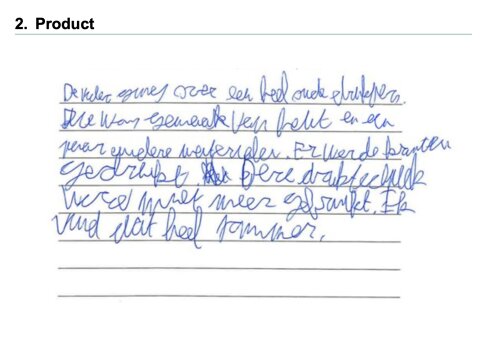 2. Product
De video ging over een heel oude drukpers.
Deze was gemaakt van hout en een
paar andere materialen. Er werde kranten
gedrukt. Deze druktechniek
werd niet meer gebruikt. Ik
vind dat heel jammer.